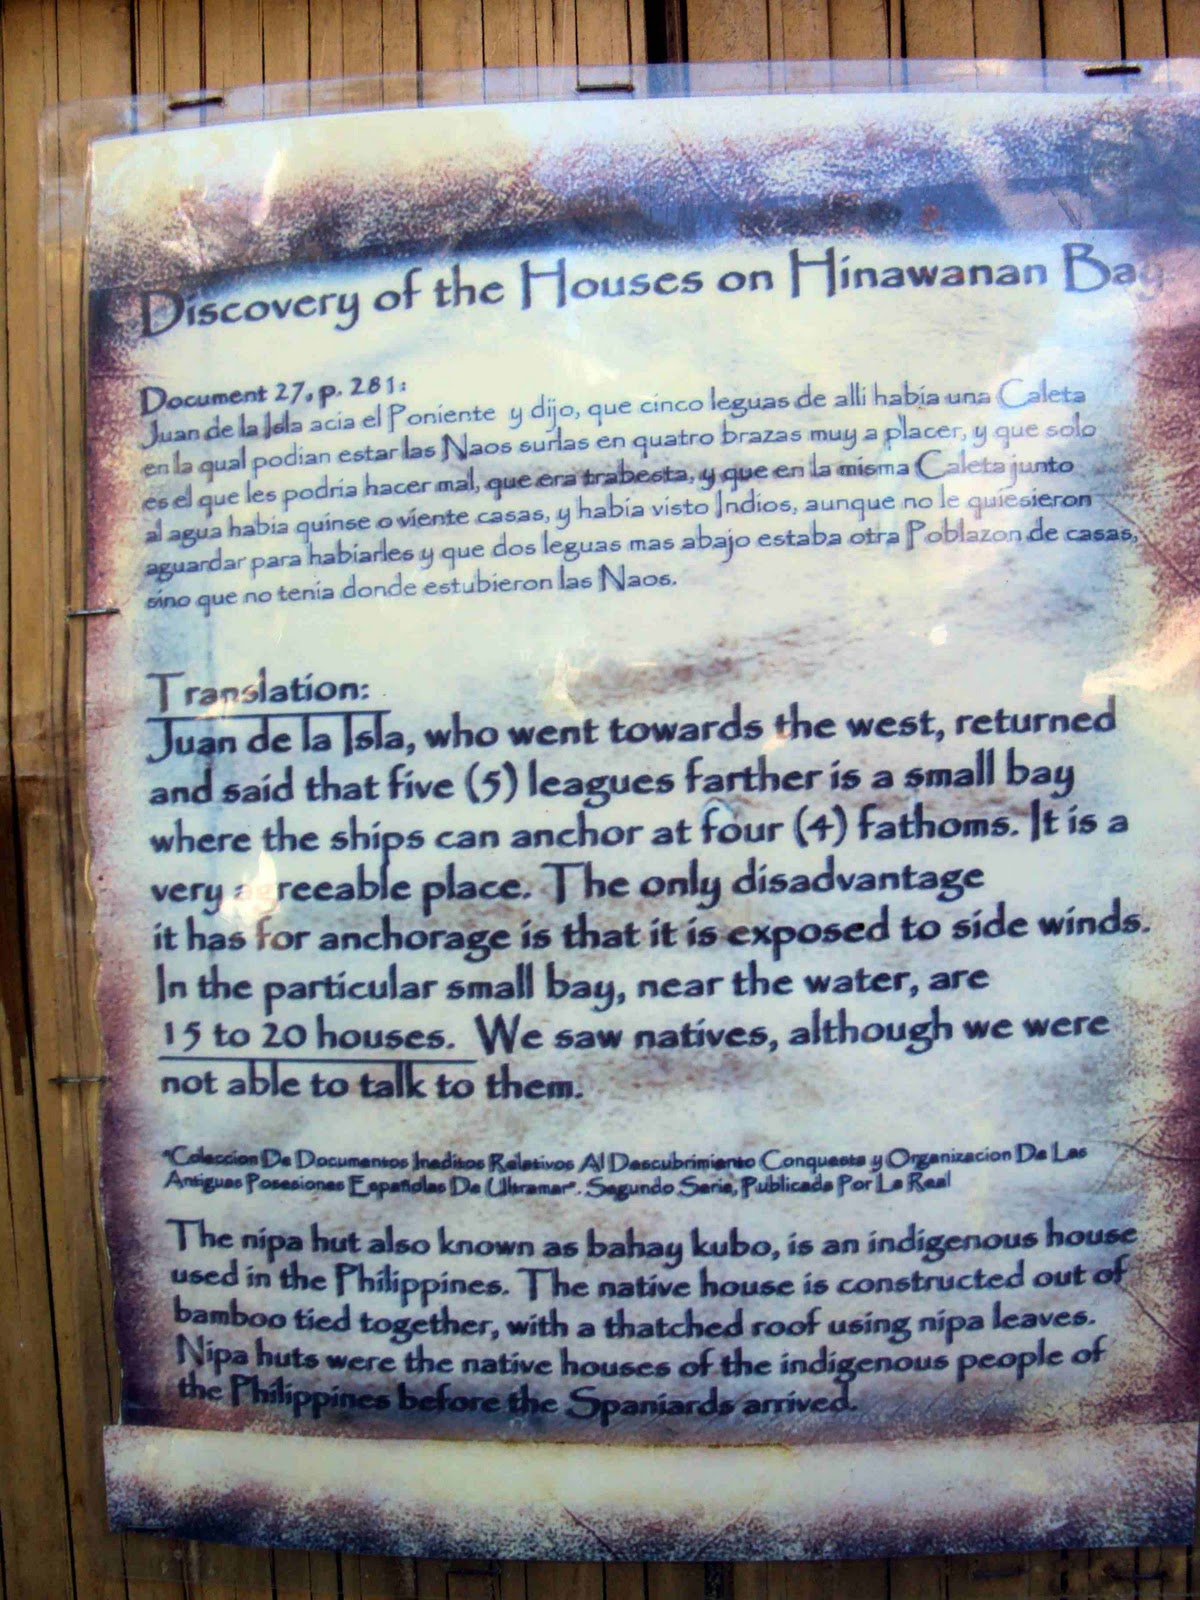 Discovery of the Houses on Hinawanan Bay
Document 27, p. 281:
Juan de la Isla acia el Poniente y dijo, que cinco leguas de alli había una Caleta
en la qual podian estar las Naos surlas en quatro brazas muy a placer, y que solo
es el que les podria hacer mal, que era trabesta, y que en la misma Caleta junto
al agua habia quinse o viente casas, y había visto Indios, aunque no le quiesieron
aguardar para habiarles y que dos leguas mas abajo estaba otra Poblazon de casas,
sino que no tenia donde estubieron las Naos.
Translation:
Juan de la Isla, who went towards the west, returned
and said that five (5) leagues farther is a small bay
where the ships can anchor at four (4) fathoms. It is a
very agreeable place. The only disadvantage
it has for anchorage is that it is exposed to side winds.
In the particular small bay, near the water, are
15 to 20 houses. We saw natives, although we were
not able to talk to them.
"Coleccion De Documentos Ineditos Relativos Al Descubrimiento Conquesta y Organizacion De Las
Antiguas Posesiones Españolas De Ultramar". Segundo Serie, Publicada Por La Real
The nipa hut also known as bahay kubo, is an indigenous house
used in the Philippines. The native house is constructed out of
bamboo tied together, with a thatched roof using nipa leaves.
Nipa huts were the native houses of the indigenous people of
the Philippines before the Spaniards arrived.